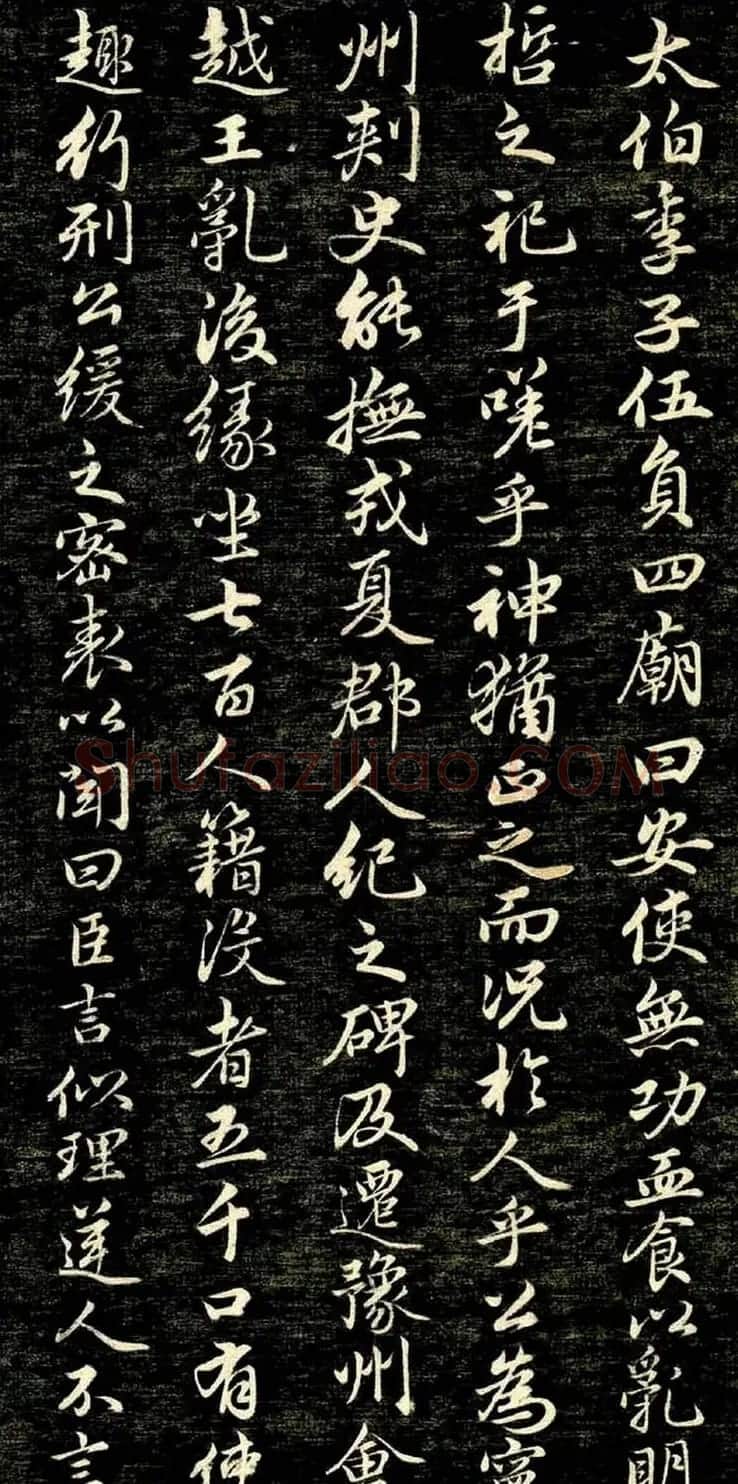 太伯季子伍員四廟曰安使無功血食以亂明
哲之祀于嗟乎神猶正之而況於人乎公為寧
州刺史能撫戎夏郡人紀之碑及遷豫州會
越王亂後緣坐七百人籍没者五千口有使
趣行刑公緩之密表以聞曰臣言似理逆人不言
Shufaziliao.COM